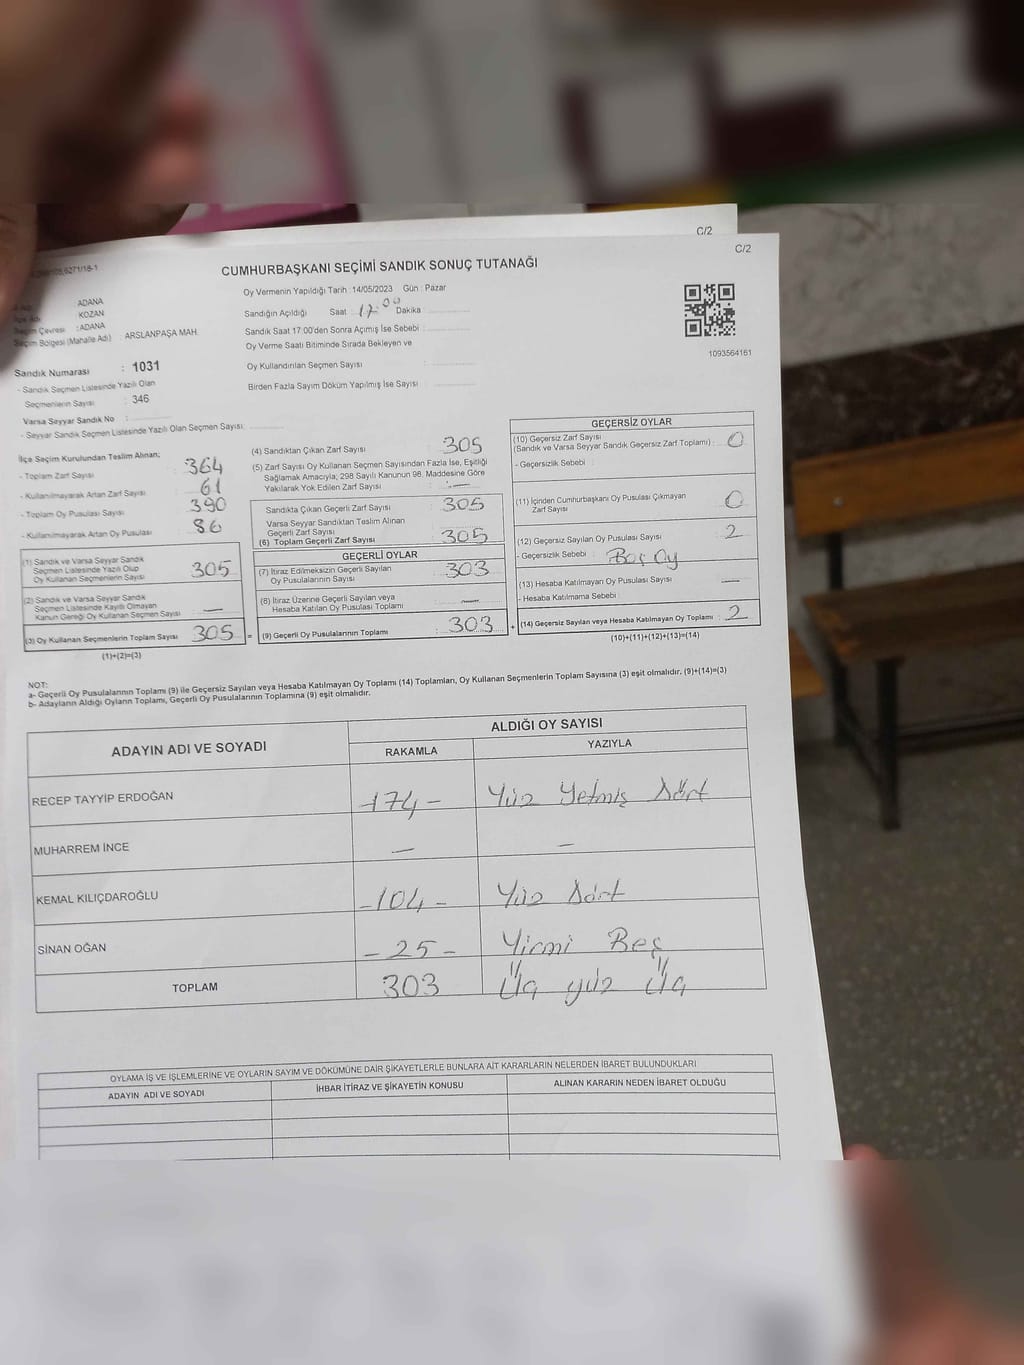 C/2
C/2
6271/18-1
CUMHURBAŞKANI SEÇİMİ SANDIK SONUÇ TUTANAĞI
ADANA
KOZAN
Seçim Çevresi : ADANA
Seçim Bölgesi (Mahalle Adı) : ARSLANPAŞA MAH.
Oy Vermenin Yapıldığı Tarih : 14/05/2023 Gün : Pazar
Sandığın Açıldığı Saat : 17:00 Dakika :
Sandık Saat 17:00'den Sonra Açımış İse Sebebi :
Oy Verme Saati Bitiminde Sırada Bekleyen ve
Oy Kullandırılan Seçmen Sayısı :
Birden Fazla Sayım Döküm Yapılmış İse Sayısı :
1093564161
Sandık Numarası : 1031
- Sandık Seçmen Listesinde Yazılı Olan
Seçmenlerin Sayısı : 346
Varsa Seyyar Sandık No :
- Seyyar Sandık Seçmen Listesinde Yazılı Olan Seçmen Sayısı:
İlçe Seçim Kurulundan Teslim Alınan;
- Toplam Zarf Sayısı : 364
- Kullanılmayarak Artan Zarf Sayısı : 61
- Toplam Oy Pusulası Sayısı : 390
- Kullanılmayarak Artan Oy Pusulası : 86
(1) Sandık ve Varsa Seyyar Sandık
Seçmen Listesinde Yazılı Olup
Oy Kullanan Seçmenlerin Sayısı : 305
(2) Sandık ve Varsa Seyyar Sandık
Seçmen Listesinde Kayıtlı Olmayan
Kanun Gereği Oy Kullanan Seçmen Sayısı : —
(3) Oy Kullanan Seçmenlerin Toplam Sayısı : 305 =
(1)+(2)=(3)
(4) Sandıktan Çıkan Zarf Sayısı : 305
(5) Zarf Sayısı Oy Kullanan Seçmen Sayısından Fazla İse, Eşitliği
Sağlamak Amacıyla; 298 Sayılı Kanunun 98. Maddesine Göre
Yakılarak Yok Edilen Zarf Sayısı : —
Sandıkta Çıkan Geçerli Zarf Sayısı : 305
Varsa Seyyar Sandıktan Teslim Alınan
Geçerli Zarf Sayısı :
(6) Toplam Geçerli Zarf Sayısı : 305
GEÇERLİ OYLAR
(7) İtiraz Edilmeksizin Geçerli Sayılan
Oy Pusulalarının Sayısı : 303
(8) İtiraz Üzerine Geçerli Sayılan veya
Hesaba Katılan Oy Pusulası Toplamı : —
(9) Geçerli Oy Pusulalarının Toplamı : 303 +
GEÇERSİZ OYLAR
(10) Geçersiz Zarf Sayısı
(Sandık ve Varsa Seyyar Sandık Geçersiz Zarf Toplamı) : 0
- Geçersizlik Sebebi :
(11) İçinden Cumhurbaşkanı Oy Pusulası Çıkmayan
Zarf Sayısı : 0
(12) Geçersiz Sayılan Oy Pusulası Sayısı : 2
- Geçersizlik Sebebi : Boş Oy
(13) Hesaba Katılmayan Oy Pusulası Sayısı : —
- Hesaba Katılmama Sebebi :
(14) Geçersiz Sayılan veya Hesaba Katılmayan Oy Toplamı : 2
(10)+(11)+(12)+(13)=(14)
NOT:
a- Geçerli Oy Pusulalarının Toplamı (9) ile Geçersiz Sayılan veya Hesaba Katılmayan Oy Toplamı (14) Toplamları, Oy Kullanan Seçmenlerin Toplam Sayısına (3) eşit olmalıdır. (9)+(14)=(3)
b- Adayların Aldığı Oyların Toplamı, Geçerli Oy Pusulalarının Toplamına (9) eşit olmalıdır.
ADAYIN ADI VE SOYADI
ALDIĞI OY SAYISI
RAKAMLA YAZIYLA
RECEP TAYYİP ERDOĞAN -174- Yüz Yetmiş Dört
MUHARREM İNCE — —
KEMAL KILIÇDAROĞLU -104- Yüz Dört
SİNAN OĞAN -25- Yirmi Beş
TOPLAM 303 Üç yüz Üç
OYLAMA İŞ VE İŞLEMLERİNE VE OYLARIN SAYIM VE DÖKÜMÜNE DAİR ŞİKAYETLERLE BUNLARA AİT KARARLARIN NELERDEN İBARET BULUNDUKLARI
ADAYIN ADI VE SOYADI İHBAR İTİRAZ VE ŞİKAYETİN KONUSU ALINAN KARARIN NEDEN İBARET OLDUĞU